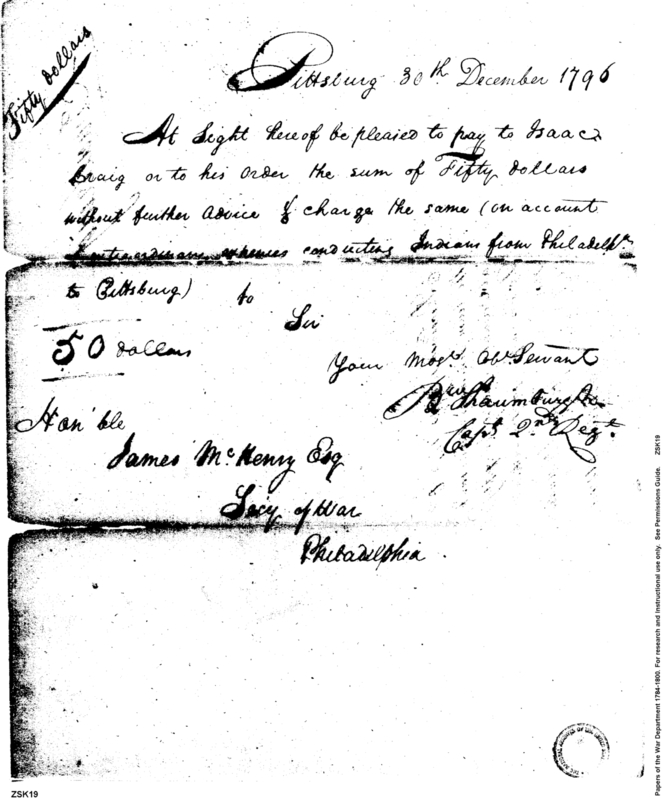 Fifty Dollars
Pittsburg 30th December 1796
At Sight hereof be pleased to pay to Isaac
Craig or to his order the sum of Fifty Dollars
without further Advice & charge the same (on account
of extraordinary expenses conducting Indians from Philadelpa
to Pittsburg) to
Sir
50 Dollars
Your Most Obt Servant
Schaumburgh
Capt. 2nd Regt.
Hon'ble
James McHenry Esq
Secy of War
Philadelphia
Papers of the War Department 1784-1800. For research and instructional use only. See Permissions Guide. ZSK19
ZSK19